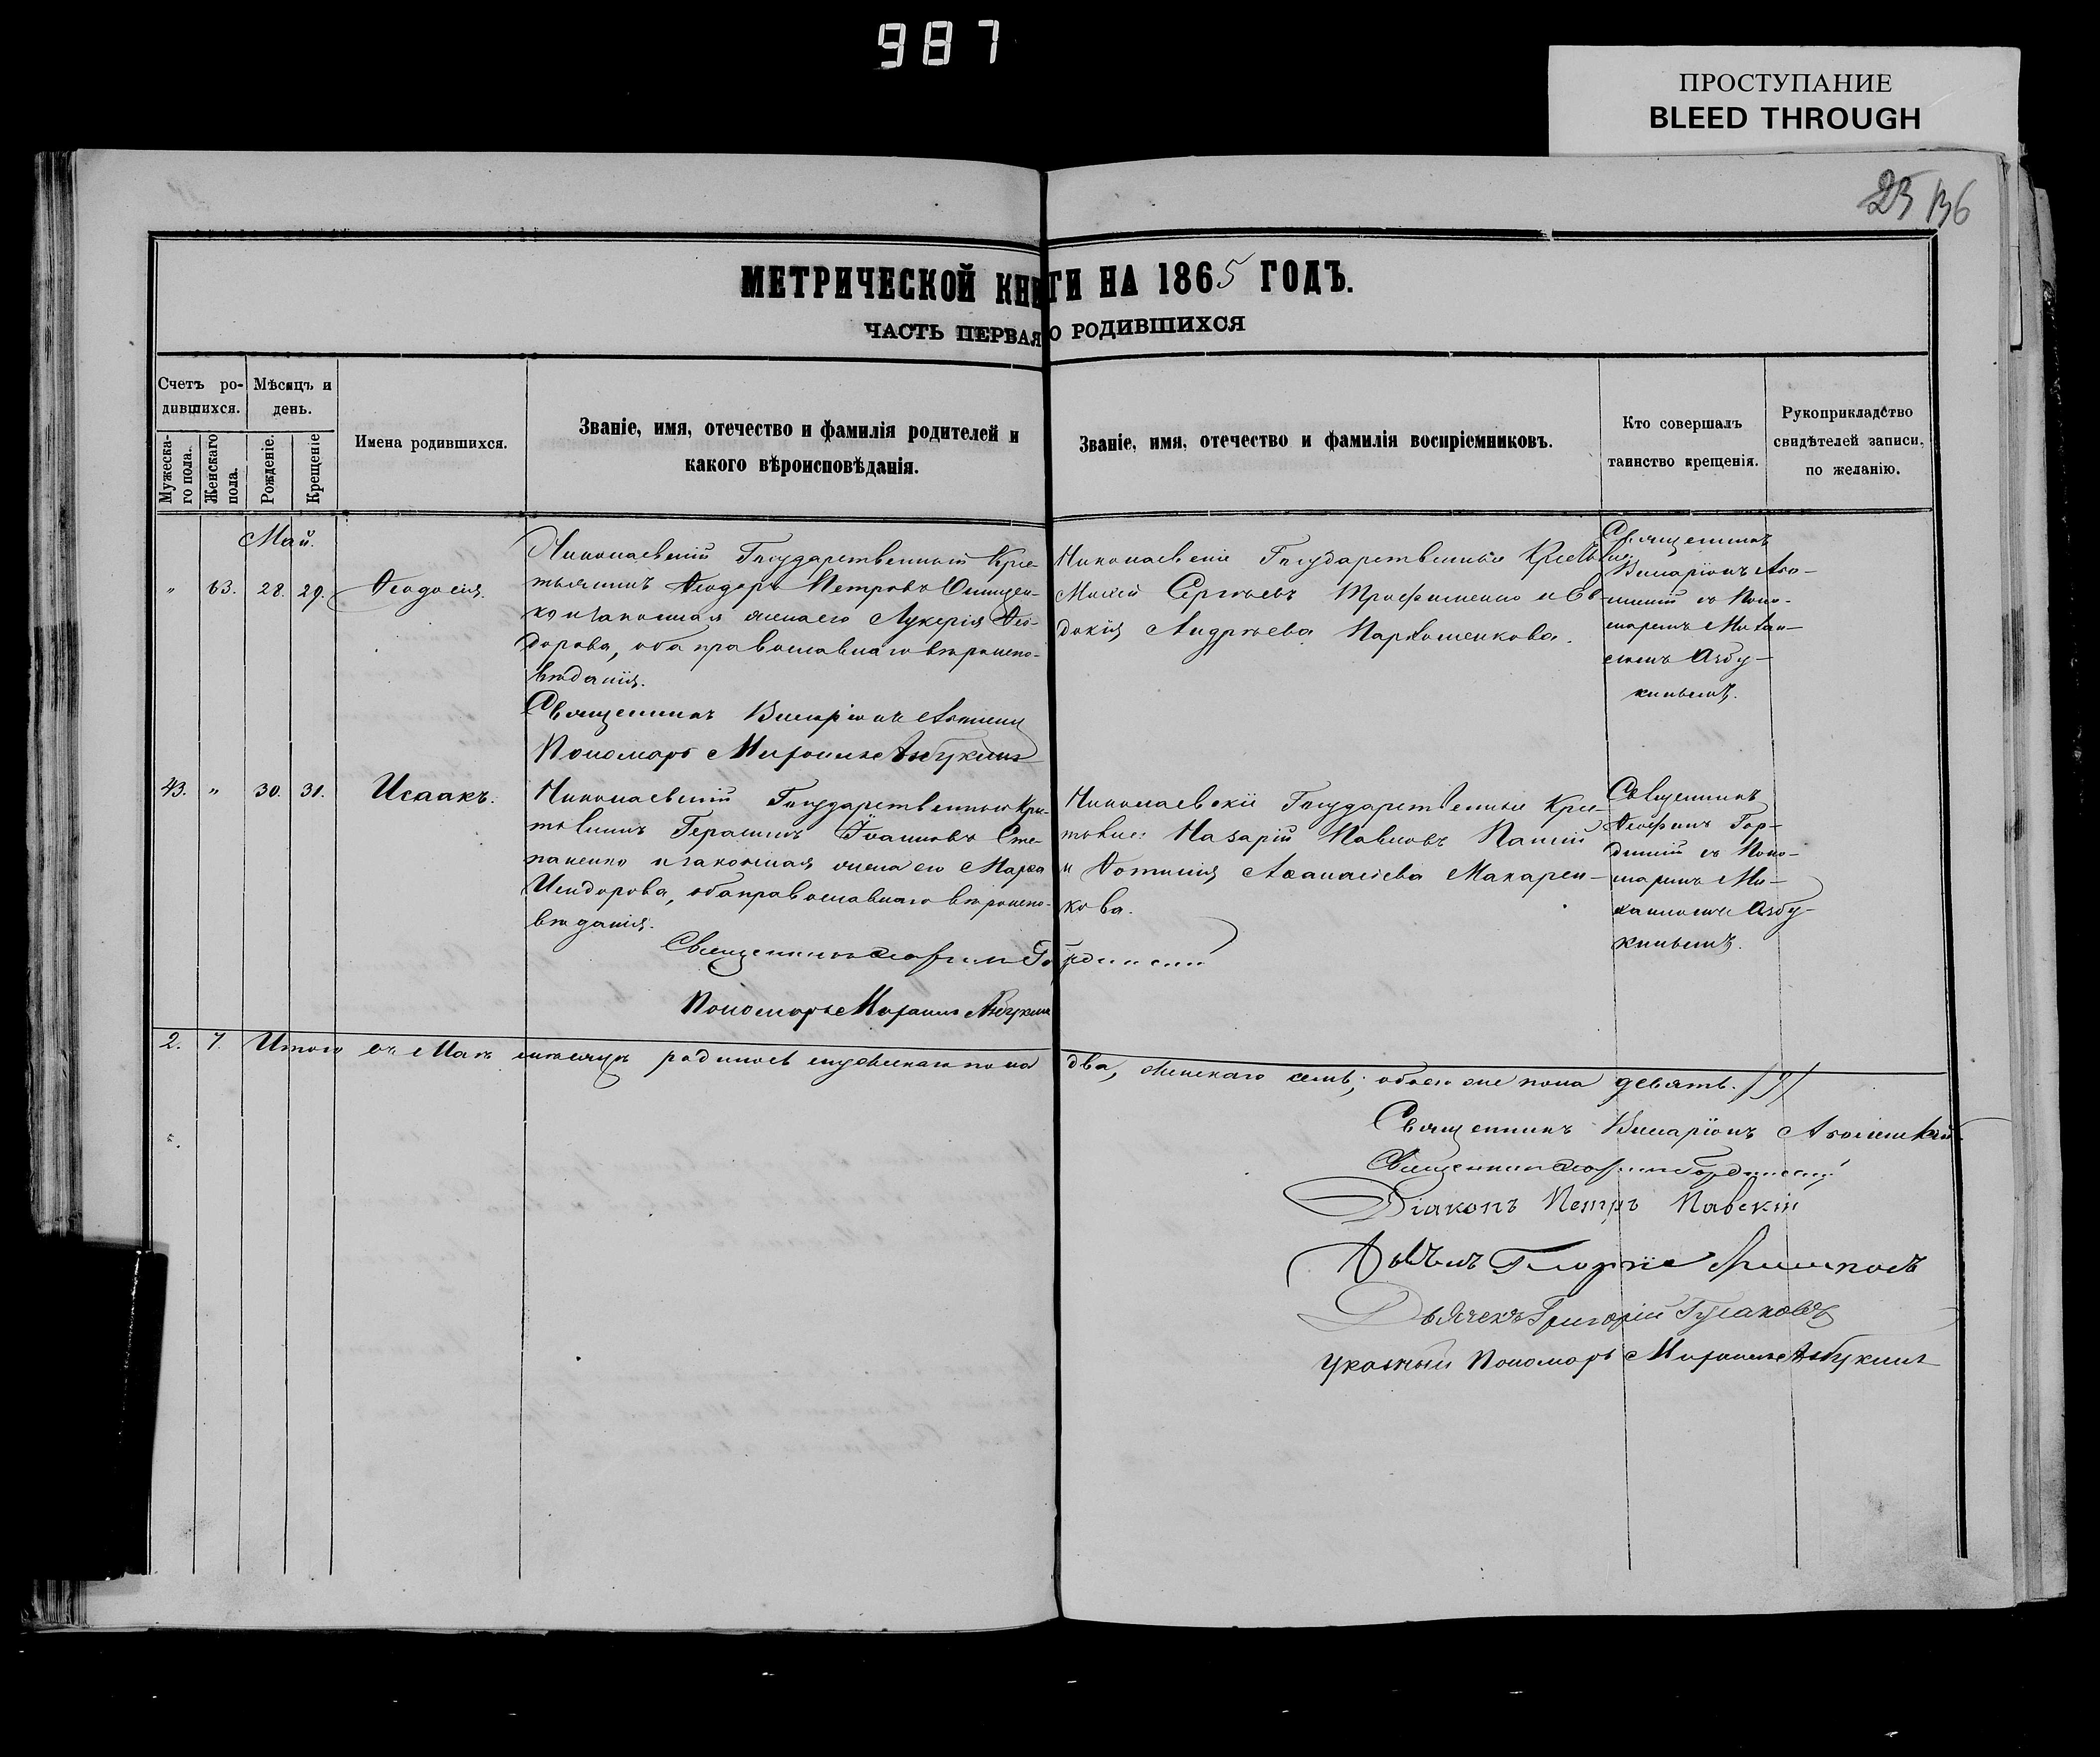 987
ПРОСТУПАНИЕ
BLEED THROUGH
25 136
МЕТРИЧЕСКОЙ КНИГИ НА 1865 ГОДЪ.
ЧАСТЬ ПЕРВАЯ О РОДИВШИХСЯ
Счетъ родившихся.
Мѣсяцъ и день.
Мужескаго пола.
Женскаго пола.
Рожденіе.
Крещеніе
Имена родившихся.
Званіе, имя, отечество и фамилія родителей и
какого вѣроисповѣданія.
Званіе, имя, отечество и фамилія воспріемниковъ.
Кто совершалъ
таинство крещенія.
Рукоприкладство
свидѣтелей записи
по желанію.
Май.
" 63. 28. 29. Ѳеодосія.
Николаевскій Государственный Кре-
стьянинъ Ѳеодоръ Петровъ Онищен-
ко и законная жена его Лукерія Ѳео-
дорова, оба православнаго вѣроиспо-
вѣданія.
Священникъ Иларіонъ
Пономарь Михаилъ Азбукинъ
Николаевскіе Государственные Крестьяне:
Сергѣевъ Трофименко и Ев-
докія Андрѣева Пархоменкова.
Священникъ
Иларіонъ
съ Поно-
маремъ Михаи-
ломъ Азбу-
кинымъ.
43. " 30. 31. Исаакъ.
Николаевскій Государственный Кре-
стьянинъ Герасимъ Іоанновъ Сте-
паненко и законная жена его Марѳа
Исидорова, оба православнаго вѣроиспо-
вѣданія.
Священникъ Ѳеофилъ Гординскій
Пономарь Михаилъ Азбукинъ
Николаевскіе Государственные Кре-
стьяне: Назарій Павловъ
и Ѳотинія Аѳанасіева Макарен-
кова.
Священникъ
Гор-
динскій съ Поно-
маремъ Ми-
хаиломъ Азбу-
кинымъ.
2. 7. Итого въ Маѣ мѣсяцѣ родилось мужескаго пола два, женскаго семь, обоего же пола девять. /9/
Священникъ Иларіонъ
Священникъ Гординскій
Діаконъ Петръ Павскій
Дьячекъ Георгій
Дьячекъ Григорій Гусаковъ
Указный Пономарь Михаилъ Азбукинъ